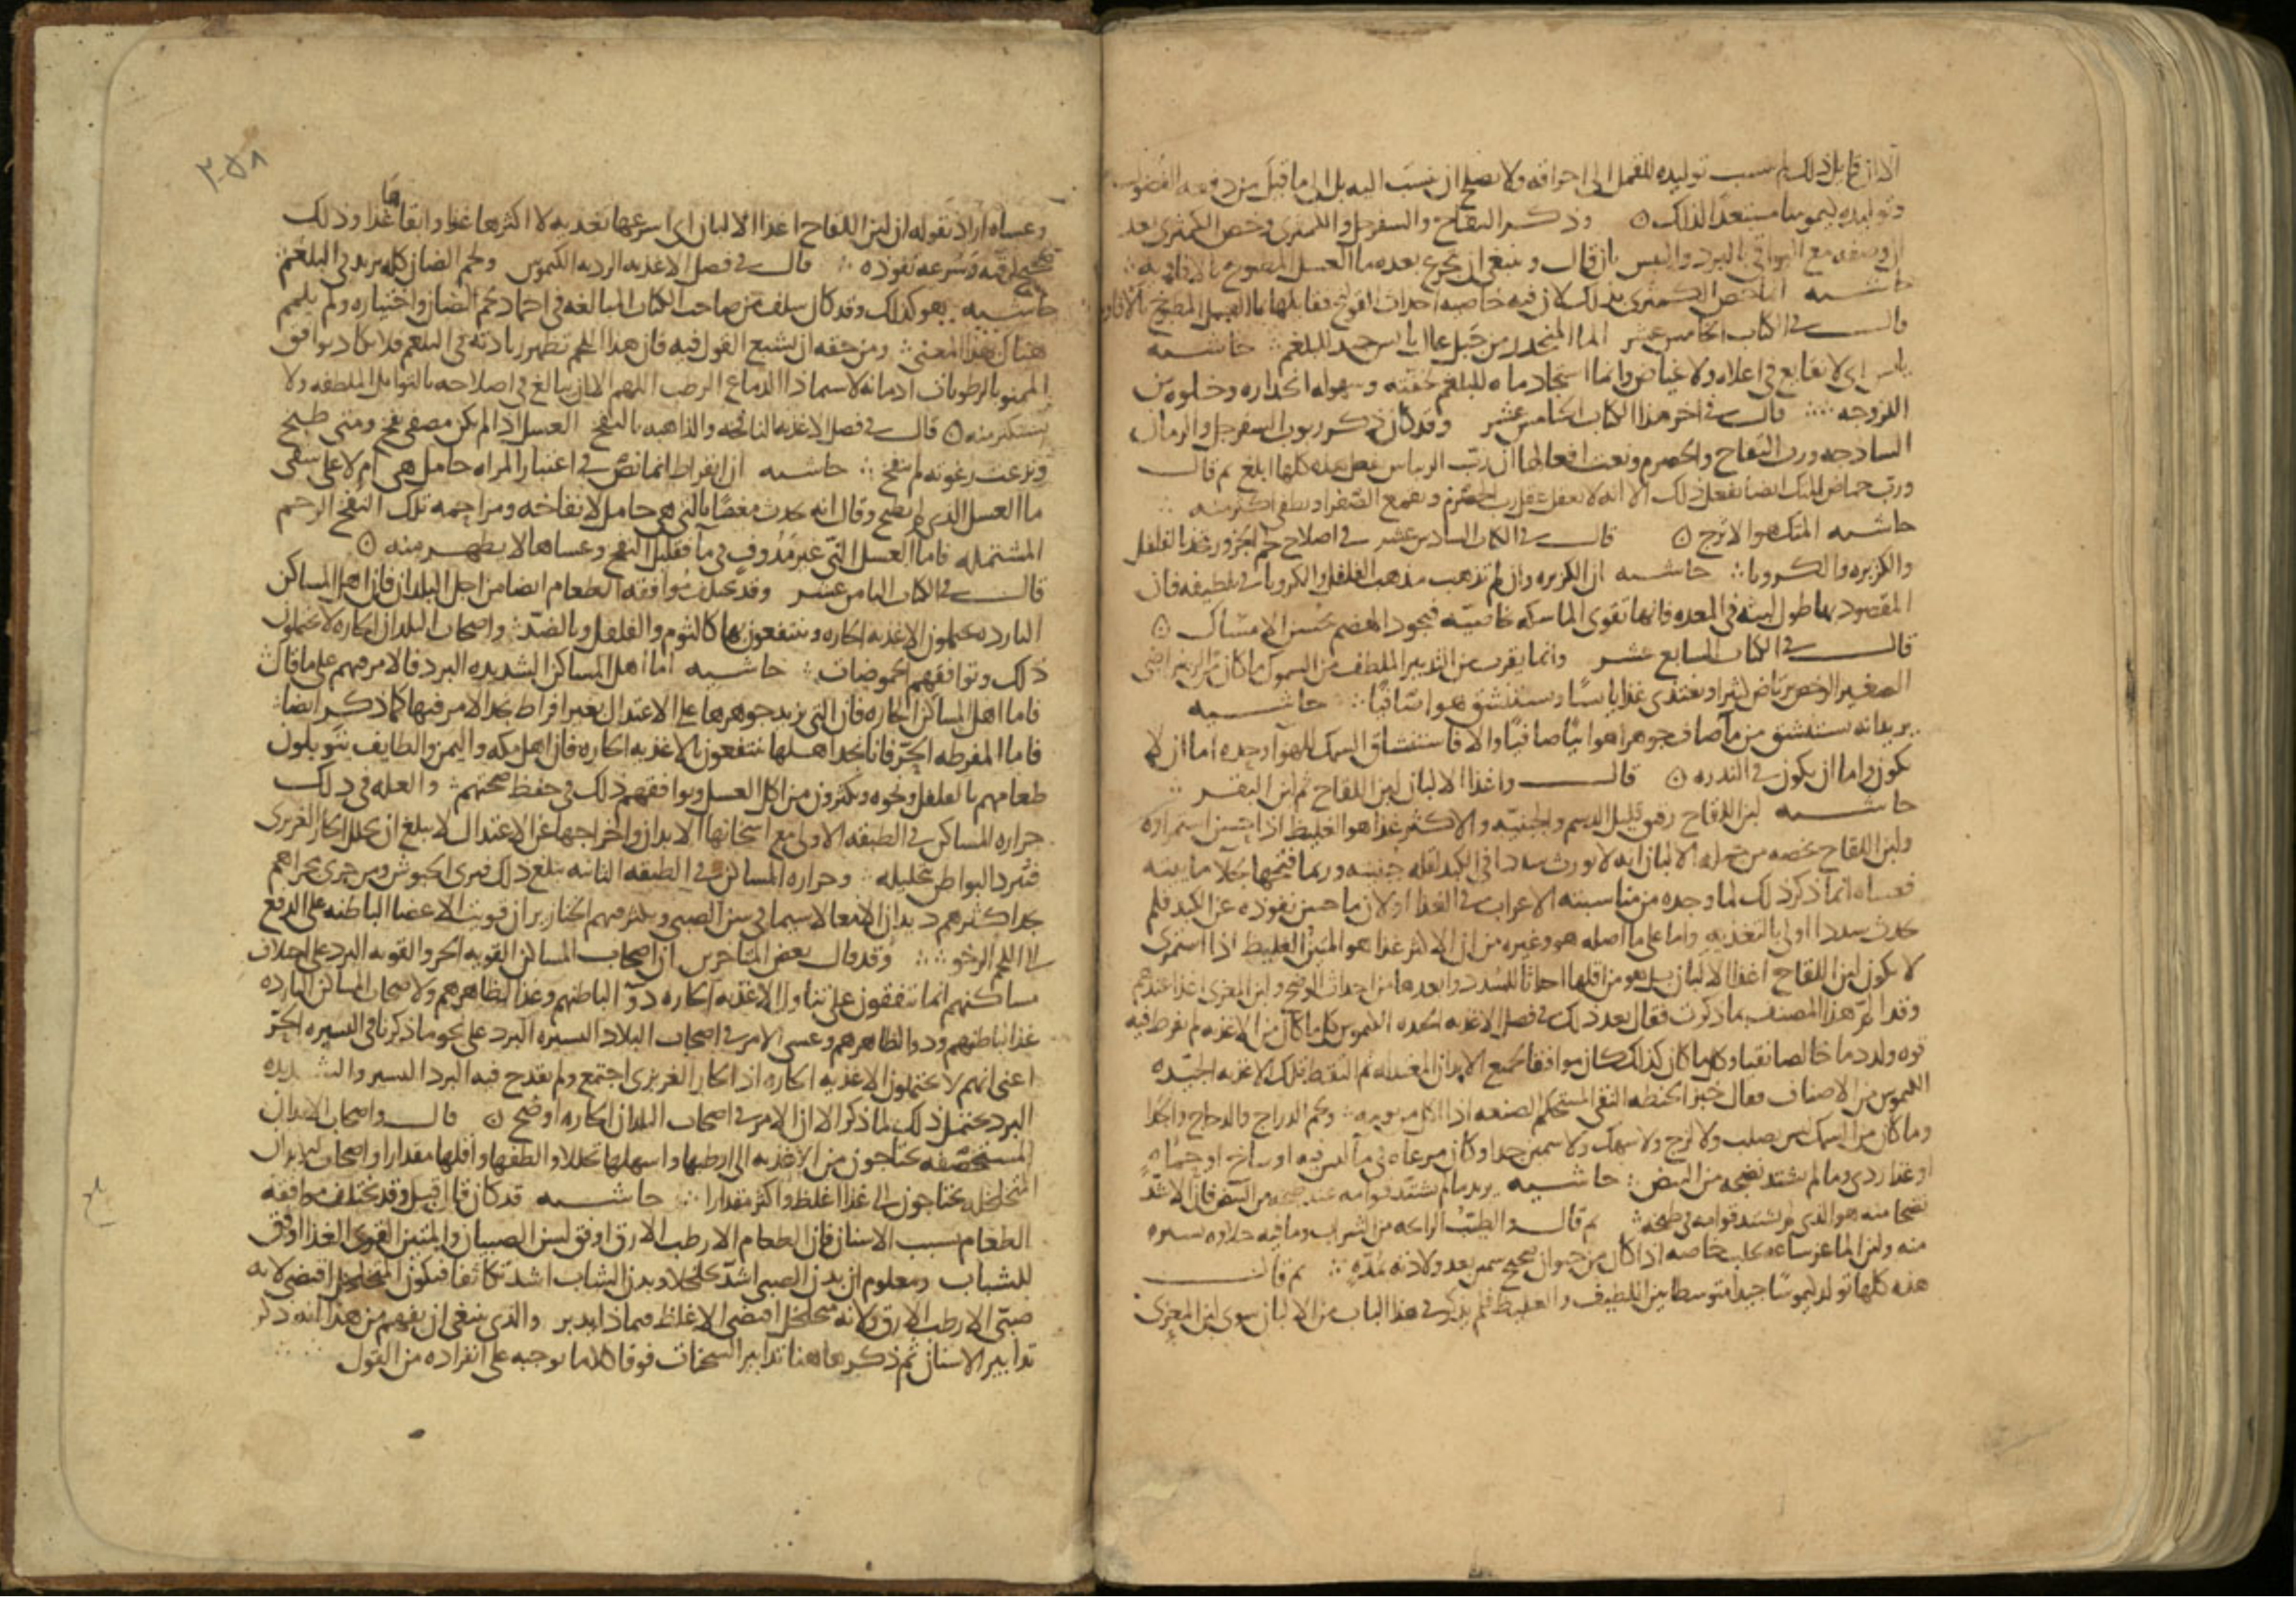 الا ان قابل ذلك لم ينسب توليده للقمل الى احراقه ولا يصلح ان ينسب اليه بل الى ما قيل من دفعه الفضول
وتوليده كيموسا مستعدا لذلك ن وذكر التفاح والسفرجل والكمثرى وخص الكمثرى بعد
ان وصفه مع البواقي بالبرد واليبس بان قال وينبغي ان تجرع بعده ما العسل المطبوخ بالافاويه
حاشيه انما خص الكمثرى بذلك لان فيه خاصيه احداث القولنج فقابلها بما العسل المطبوخ بالافاويه
قال في الكتاب الخامس عشر الما المنحدر من جبل عال يابس جيد للبلغم حاشيه
يابس اي لا نقايع في اعلاه ولا غياض وانما استجاد ماه للبلغم لخفته وسهوله انحداره وخلوه من
اللزوجه قال في اخر هذا الكتاب الخامس عشر وقد كان ذكر ربوب السفرجل والرمان
الساذجه ورب التفاح والحصرم ونعت افعالها ان رب الريباس يفعل هذه كلها ابلغ ثم قال
ورب حماض المتك ايضا يفعل ذلك الا انه لا يعقل عقل رب الحصرم ويقمع الصفرا ويطفي اكثر منه
حاشيه المتك هو الاترج ن قال في الكتاب السادس عشر في اصلاح لحم الجزور فخذ الفلفل
والكزبره والكرويا حاشيه ان الكزبره وان لم تذهب مذهب الفلفل والكرويا في تلطيفه فان
المقصود بها طول لبثه في المعده فانها تقوى الماسكه خاصيه فيجود الهضم بحسن الامساك ن
قال في الكتاب السابع عشر وانما يقرب من التدبير الملطف من السموك ما كان من الرضراضي
الصغير الرخص يرتاض كثيرا ويغتذى غذا يابسا ويستنشق هوا نقيا حاشيه
يريد انه يستنشق من ما صاف جوهرا هوائيا صافيا والا فاستنشاق السمك للهوا وحده اما ان لا
يكون واما ان يكون في الندره ن قال واغذا الالبان لبن اللقاح ثم لبن البقر
حاشيه لبن اللقاح رقيق قليل الدسم والجبنيه والاكثر غذا هو الغليظ اذا احسن استمراوه
ولبن اللقاح يخصه من جمله الالبان انه لا يورث سددا في الكبد لقله جبنيته وربما فتحها بجلا مائيته
فعساه انما ذكر ذلك لما وجده من مناسبته الاعراب في الغذا او لان ما حسن نفوذه عن الكبد فلم
يحدث سددا اولى بالتغذيه واما على ما اصله هو وغيره من ان الاكثر غذا هو المتين الغليظ اذا استمرى
لا يكون لبن اللقاح اغذا الالبان بل هو من اقلها احداثا للسدد وابعدها من احداث الوضح ولبن المعزى اغذا عندهم
وقد اقر هذا المصنف بما ذكرت فقال بعد ذلك في فصل الاغذيه الجيده الكيموس كل ما كان من الاغذيه لم تفرط فيه
قوه ولد دما خالصا نقيا وكل ما كان كذلك كان موافقا لجميع الابدان المعتدله ثم التقط تلك الاغذيه الجيده
الكيموس من الاصناف فقال خبز الحنطه النقي المستحكم الصنعه اذا اكل من يومه ولحم الدراج والدجاج والجدا
وما كان من السمك ليس بصلب ولا لزج ولا سهك ولا سمين جدا وكان مرعاه في ما ليس فيه اوساخ او حماه
او غذا ردى وما لم يشتد نضجه من البيض حاشيه يريد ما لم يشتد قوامه عند طبخه من البيض فان الاشد
نضجا منه هو الذي لم يشتد قوامه في طبخه ثم قال والطيب الرائحه من الشراب وما فيه حلاوه يسيره
منه ولبن الماعز ساعه يحلب خاصه اذا كان من حيوان صحيح سمين بعد ولادته بمده ثم قال
هذه كلها تولد كيموسا جيدا متوسطا بين اللطيف والغليظ فلم يذكر في هذا الباب من الالبان سوى لبن المعزى
٢٥٨
وعساه اراد بقوله ان لبن اللقاح اغذا الالبان اي اسرعها تغذيه لا اكثرها غذا وابقاها غذا وذلك
صحيح لرقته وسرعه نفوذه قال في فصل الاغذيه الرديه الكيموس ولحم الضان كله يزيد في البلغم
حاشيه هو كذلك وقد كان سلف من صاحب الكتاب المبالغه في احماد لحم الضان واختياره ولم يلمم
هناك بهذا المعنى ومن حقه ان يشبع القول فيه فان هذا اللحم تظهر زيادته في البلغم فلا يكاد يوافق
الممنو بالرطوبات ادمانه لا سيما ذا الدماغ الرطب اللهم الا بان يبالغ في اصلاحه بالتوابل الملطفه ولا
يستكثر منه ن قال في فصل الاغذيه النافخه والذاهبه بالنفخ العسل اذا لم يكن مصفى نفخ ومتى طبخ
ونزعت رغوته لم ينفخ حاشيه ان ابقراط انما نص في اعتبار المراه حامل هي ام لا على سقى
ما العسل الذي لم يطبخ وقال انه يحدث مغصا بالتي هي حامل لانفاخه ومزاحمه تلك النفخ الرحم
المشتمله فاما العسل التي غير مدوف في ما فقليل النفخ وعساها لا يظهر منه ن
قال في الكتاب الثامن عشر وقد تختلف موافقه الطعام ايضا من اجل البلدان فان اهل المساكن
البارده يحتملون الاغذيه الحاره وينتفعون بها كالثوم والفلفل وبالضد واصحاب البلدان الحاره لا يحتملون
ذلك وتوافقهم الحموضات حاشيه اما اهل المساكن الشديده البرد فالامر فيهم على ما قال
فاما اهل المساكن الحاره فان التي يزيد جوهرها على الاعتدال بغير افراط نجد الامر فيها كما ذكر ايضا
فاما المفرطه الحر فانا نجد اهلها ينتفعون بالاغذيه الحاره فان اهل مكه واليمن والطايف يتوبلون
طعامهم بالفلفل ونحوه ويكثرون من اكل العسل ويوافقهم ذلك في حفظ صحتهم والعله في ذلك
حراره المساكن في الطبقه الاولى مع اسخانها الابدان واخراجها عن الاعتدال لا يبلغ ان يحلل الحار الغريزي
فتبرد البواطن بتحليله وحراره المساكن في الطبقه الثانيه تبلغ ذلك فترى الحبوش ومن جرى مجراهم
نجد اكثرهم ديدان الامعا لا سيما في سن الصبى ويكثر فيهم الخنازير ان قويت الاعضا الباطنه على الدفع
الى اللحم الرخو وقد قال بعض المتاخرين ان اصحاب المساكن القويه الحر والقويه البرد على اختلاف
مساكنهم انما يتفقون على تناول الاغذيه الحاره دوا لباطنهم وغذا لظاهرهم ولاصحاب المساكن البارده
غذا لباطنهم ودوا لظاهرهم وعسى الامر في اصحاب البلاد اليسيره البرد على نحو ما ذكرنا في اليسيره الحر
اعنى انهم لا يحتملون الاغذيه الحاره اذ الحار الغريزي اجتمع ولم يقدح فيه البرد اليسير والشديده
البرد يحتمل ذلك لما ذكر الا ان الامر في اصحاب البلدان الحاره اوضح ن قال واصحاب الابدان
المستحصفه يحتاجون من الاغذيه الى ارطبها واسهلها تحللا والطفها واقلها مقدارا واصحاب الابدان
المتخلخله يحتاجون الى غذا اغلظ واكثر مقدارا حاشيه قد كان قال قبيل وقد تختلف موافقه
الطعام بسبب الاسنان فان الطعام الارطب الارق اوفق لسن الصبيان والمتين القوى الغذا اوفق
للشباب ومعلوم ان بدن الصبى اشد تخلخلا وبدن الشاب اشد تكاثفا فيكون المتخلخل اقتضى لانه
صبى الارطب الارق ولانه متخلخل اقتضى الاغلظ فبماذا يدبر والذي ينبغي ان يفهم من هذا انه ذكر
تدابير الاسنان ثم ذكر هاهنا تدابير السحنات فوفا كلا ما يوجبه على انفراده من القول
بلغ